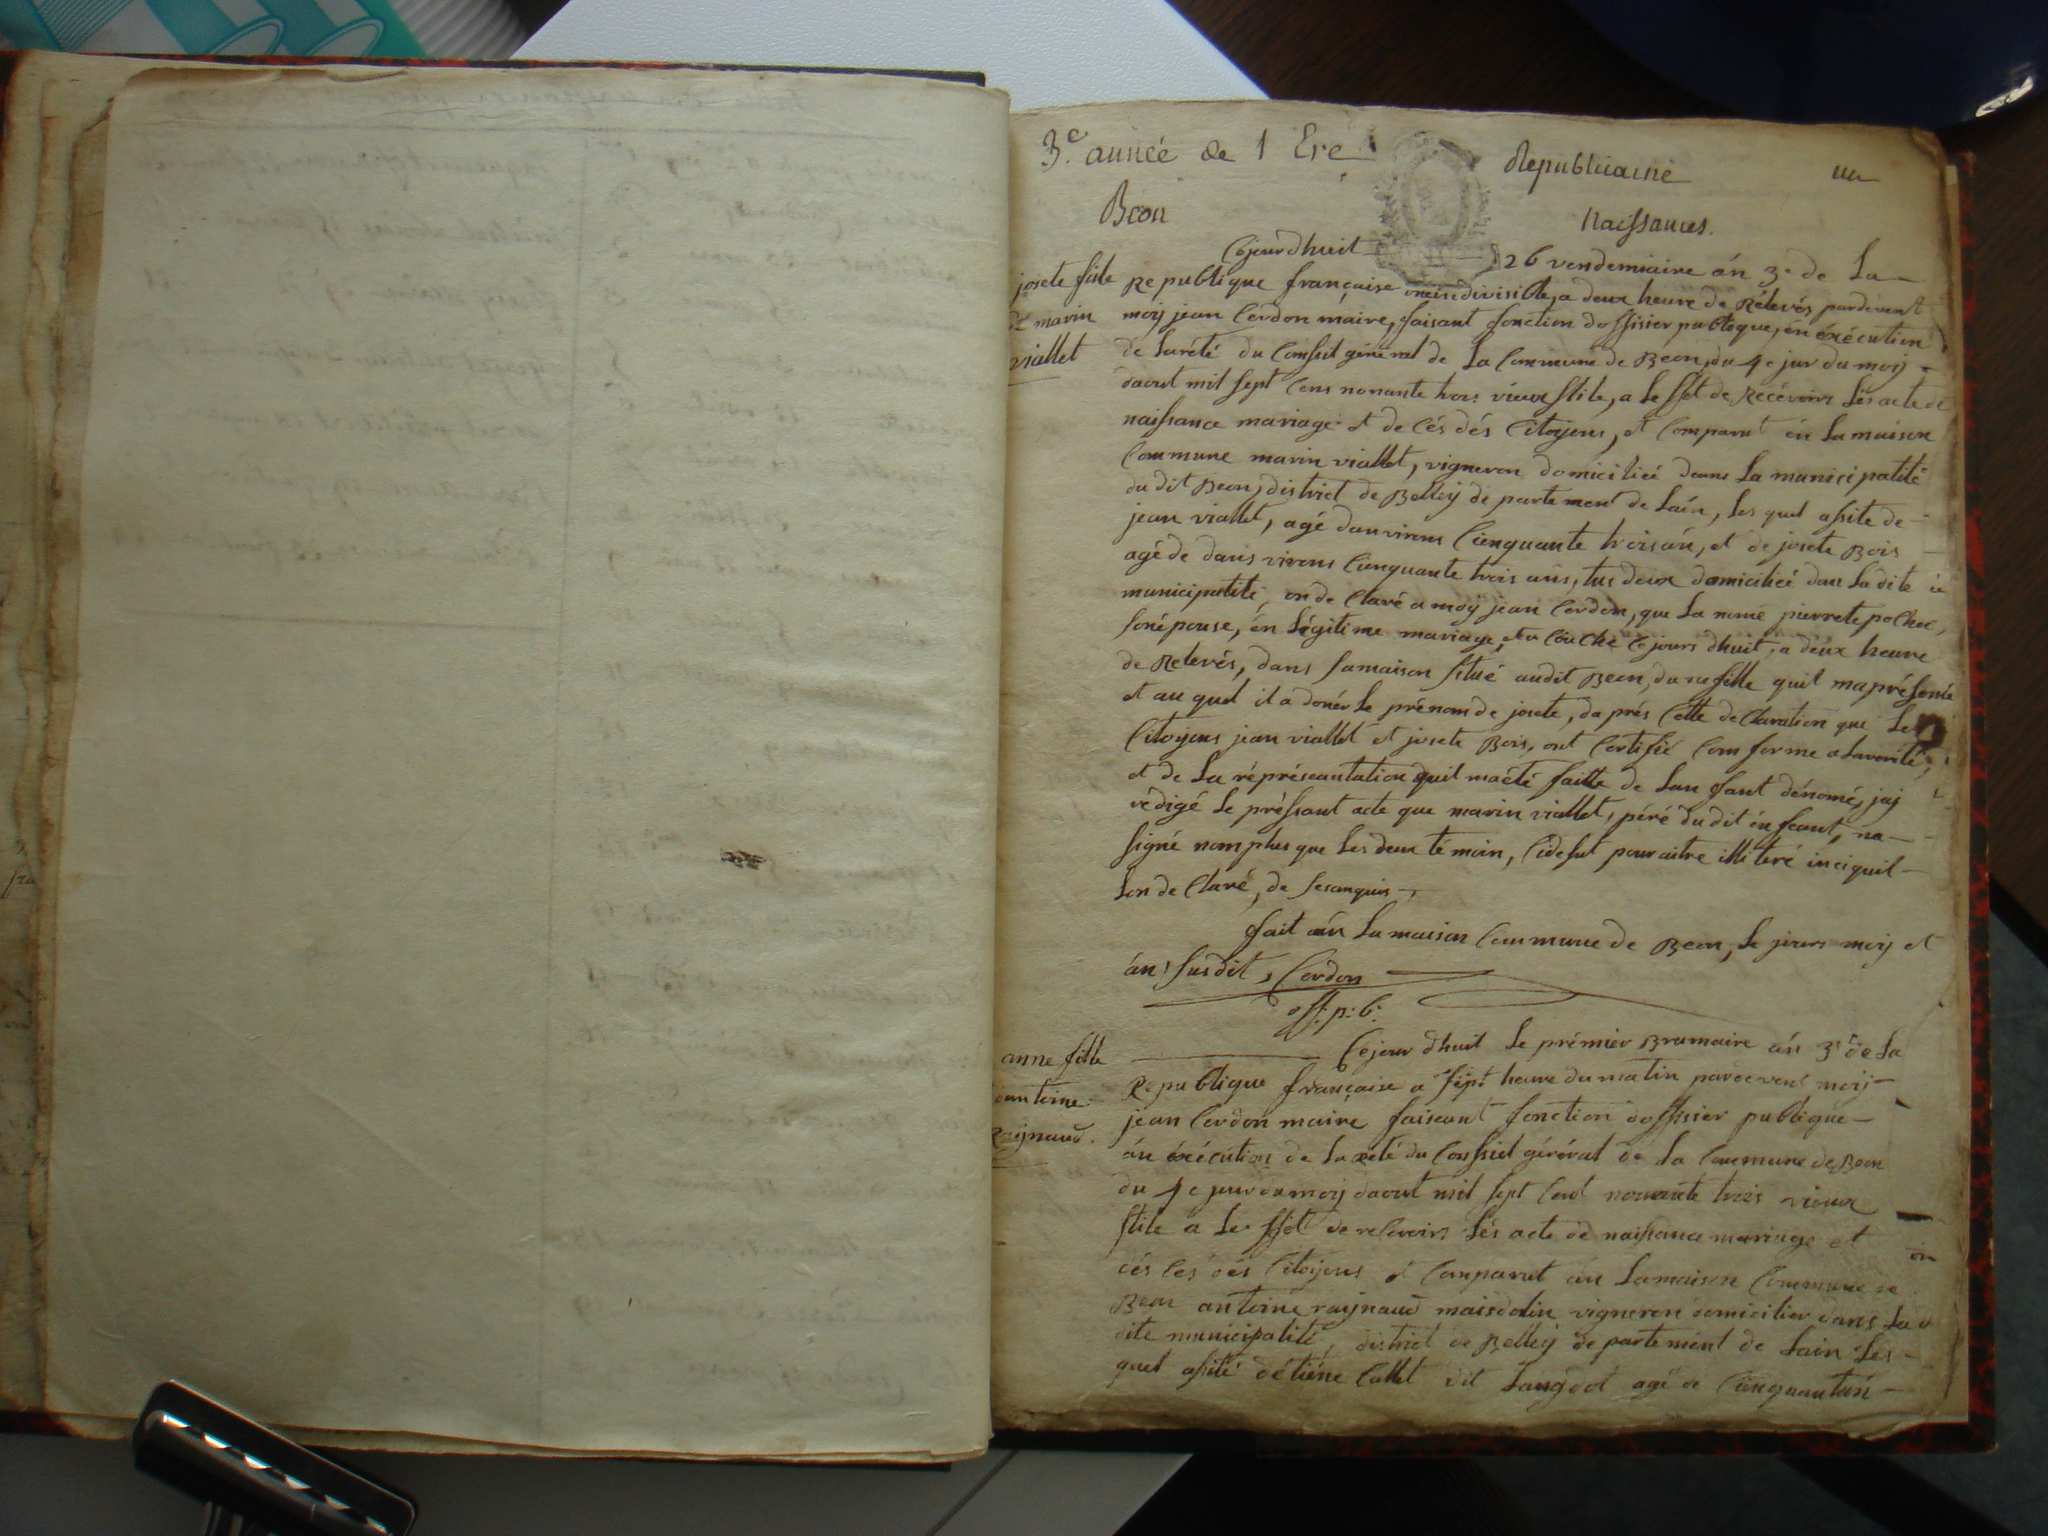 3.e année de l Ere Republicaine un
Beon Naissances.
josete fille
de marin
viallet
Cejourdhuit 26 vendemiaire án 3e de La
Republique française indivisible, a deux heure de Relevés pardevant
moij jean Cordon maire, faisant fonction doffisier publique, én éxécution
de Larété du Conseil général de La Commune de Beon, du 4e jur du moij
daout mil sept Cens nonante trois vieux stile, a Leffét de Récévoirs Lés acte de
naissance mariage et de Cés dés Citoyens, et Comparut én La maison
Commune marin viallet, vigneron domiciliéé dans La municipalité
du dit Beon, district de Belleij de partement de Laín, Les quel assite de
jean viallet, agé danvirons Cienquante troisán, et de josete Bois
agé de dans virons Cienquante trois ans, tus deux domiciliéé dans La dite
municipalité, on de Claré a moij jean Cordon, que La nomé pierrete pochet,
sonépouse, én Légitime mariage, Cejours dhuit, a deux heure
de Relevés, dans samaison situé audit Beon, du ne fille quil ma présenté
et au quel il a donér Le prénom de josete, da prés Cette de Claration que Les
Citoyens jean viallet et josete Bois, ont Certifié Com forme a Laverité,
et de La réprésantation quil maété faitte de Lan fant dénomé, jaij
rédigé Le préssant acte que marin viallet, péré du dit énfeant, na
signé nomplus que Les deux témoin, Cidesut pour aitre illiteré inciquil
Lon de Claré, de sesanquis
fait án La maison Commune de Beon, Le jours moij et
án susdit, Cordon
off. p. b.
anne fille
dantoine
Raijnaud.
Cejour dhuit Le prémier Brumaire án 3e de La
Republique française a sept heure du matin pardevent moij
jean Cordon maire faiseant fonction doffisier publique
án éxécution de Larété du Conssiel général de La Commune de Beon
du 4e jur du moij daout mil sept Cent nonante trois vieux
stile a Leffét de reCevoirs Lés acte de naissance mariage et
dés Cés dés Citoijens et Comparut án Lamaison Commune de
Beon antoine raijnaud vigneron domicilier dans La
dite municipalité, district de Belleij de partement de Lain Les
quel assité détiéne Callet dit Langdot agé de Cienquantan